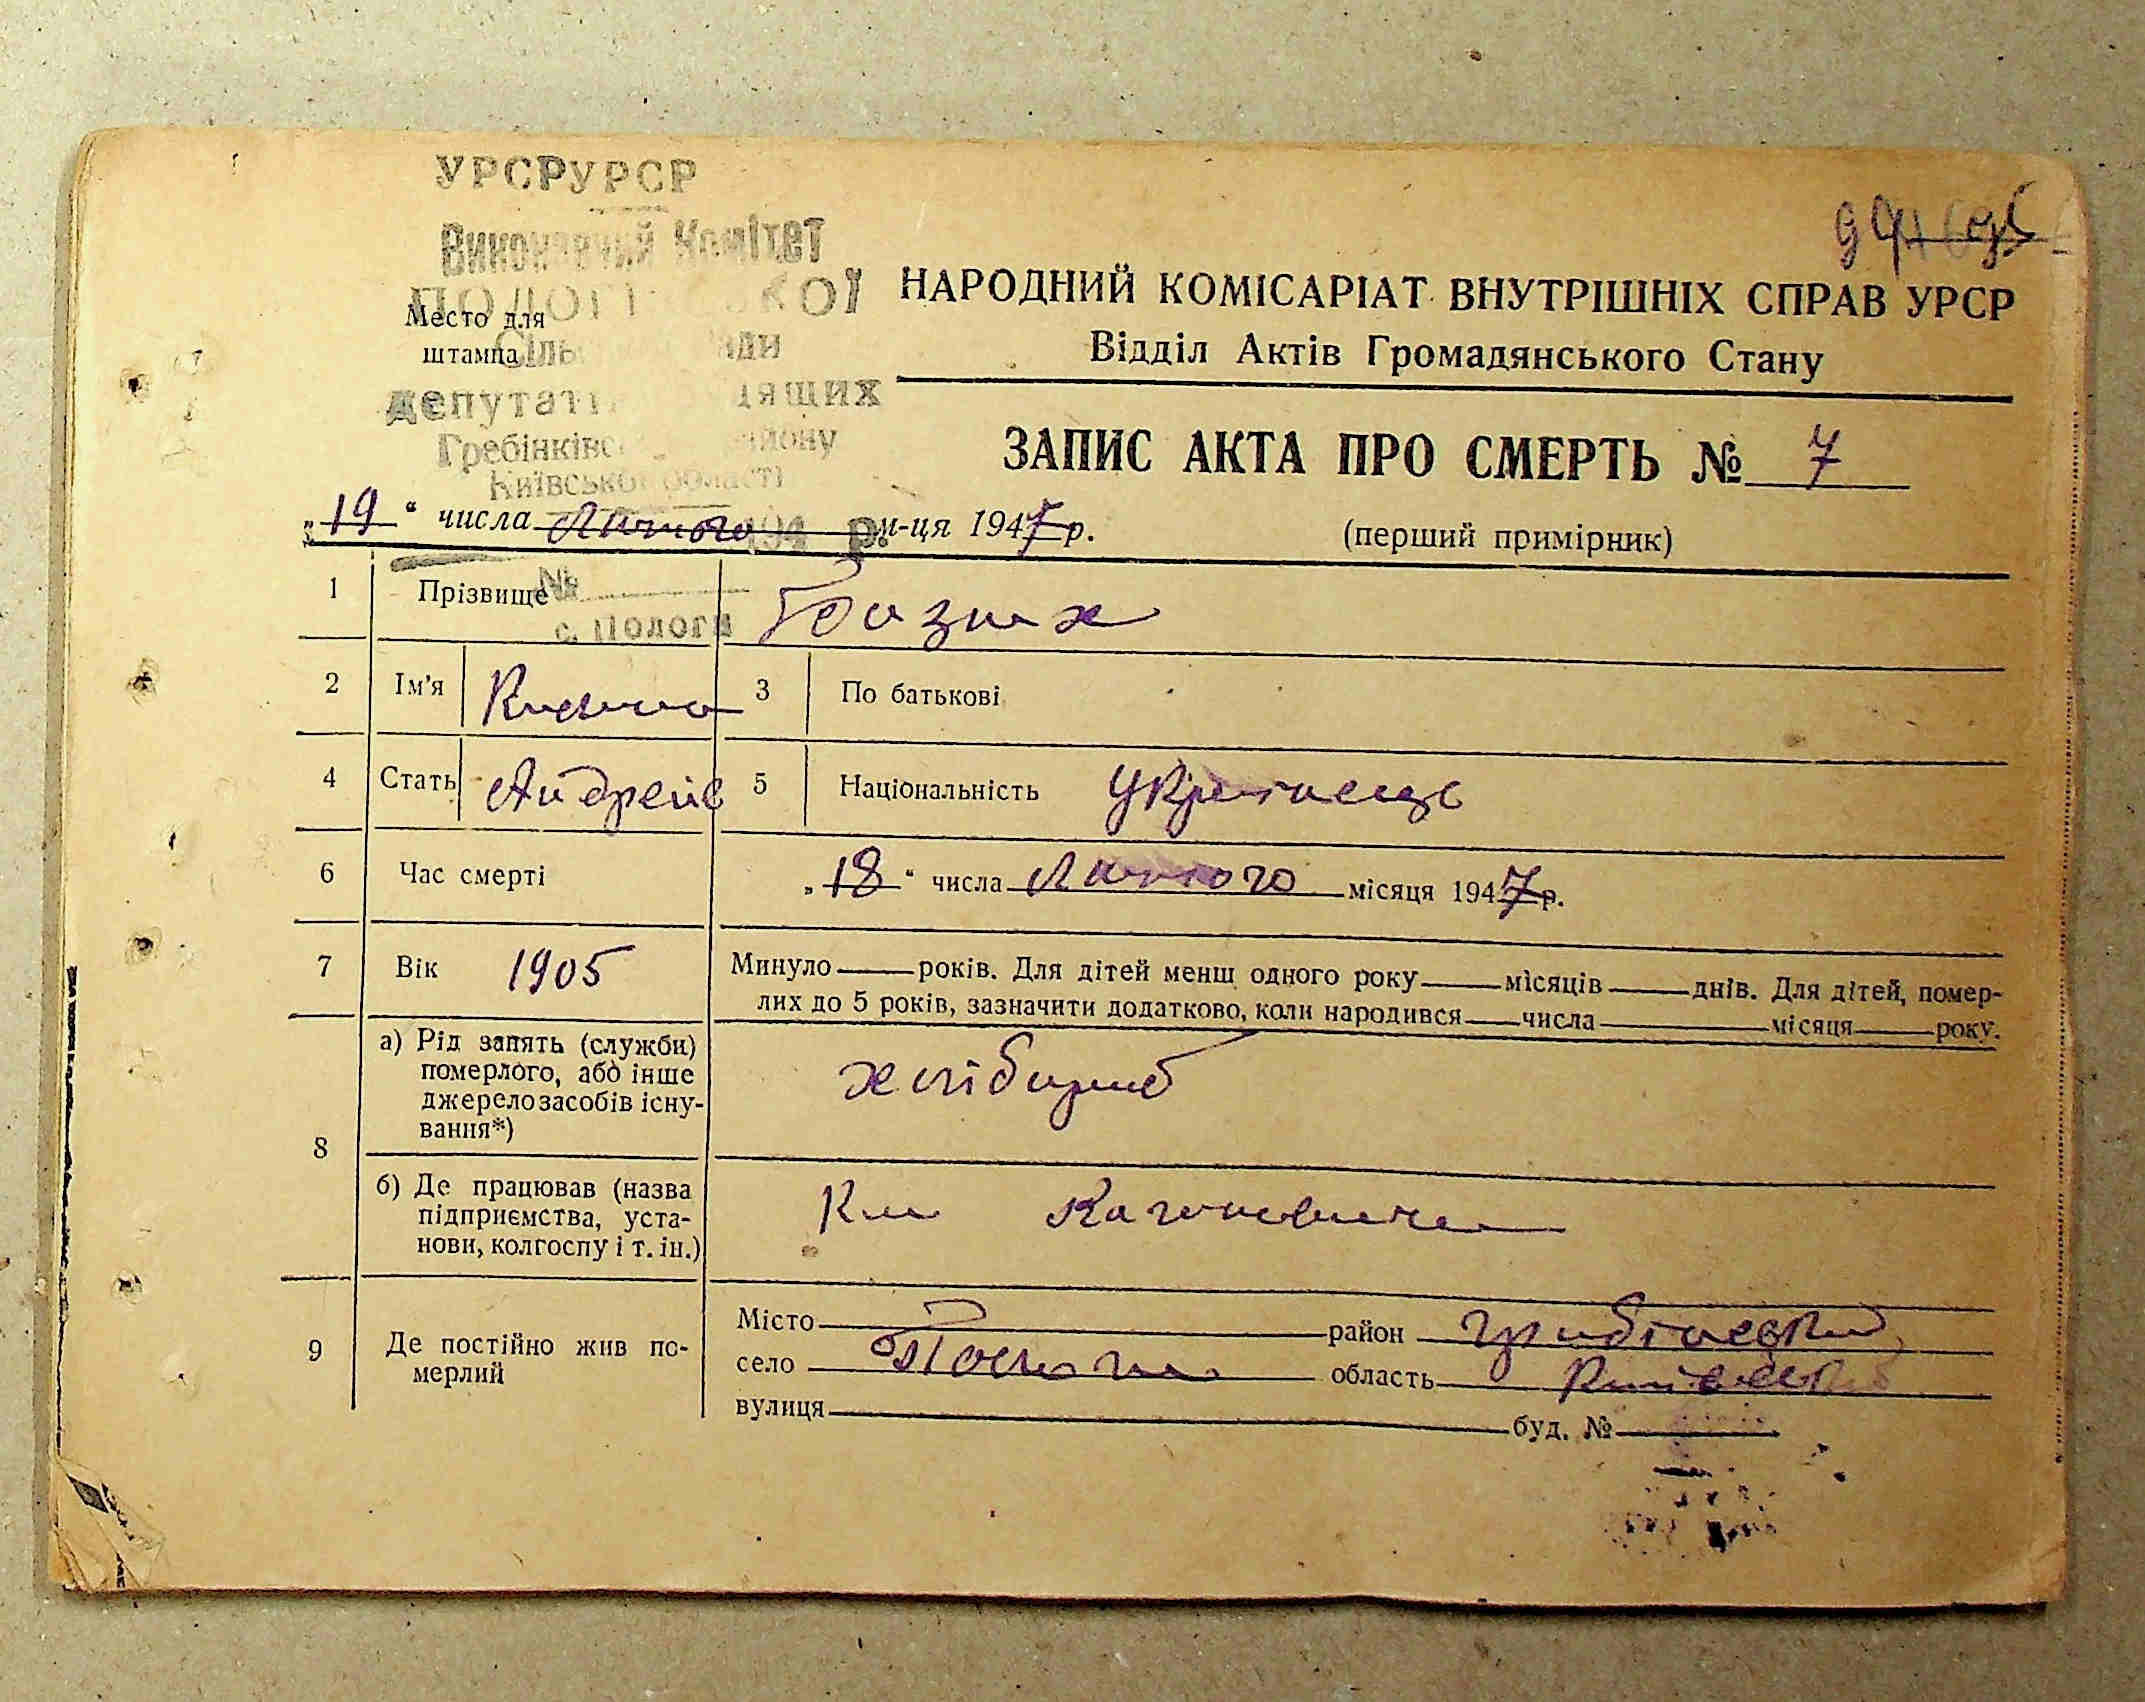 УРСРУРСР
Виконавчий Комітет
ПОЛОГІ КОЇ
Место для
штампа
Сіль ади
депутаті дящих
Гребінківс йону
Київської області
194 р.
№
с. Пологи
НАРОДНИЙ КОМІСАРІАТ ВНУТРІШНІХ СПРАВ УРСР
Відділ Актів Громадянського Стану
ЗАПИС АКТА ПРО СМЕРТЬ № 7
„19“ числа Лютого м-ця 1947 р.
(перший примірник)
1 Прізвище
2 Ім'я 3 По батькові
4 Стать Андреїв 5 Національність Українець
6 Час смерті „18“ числа Лютого місяця 1947 р.
7 Вік 1905 Минуло років. Для дітей менш одного року місяців днів. Для дітей, помер-
лих до 5 років, зазначити додатково, коли народився числа місяця року.
8 а) Рід занять (служби)
померлого, або інше
джерело засобів існу-
вання*)
хлібороб
б) Де працював (назва
підприємства, уста-
нови, колгоспу і т. ін.)
Кагановича
9 Де постійно жив по-
мерлий
Місто район
село Пологи область Київська
вулиця буд. №